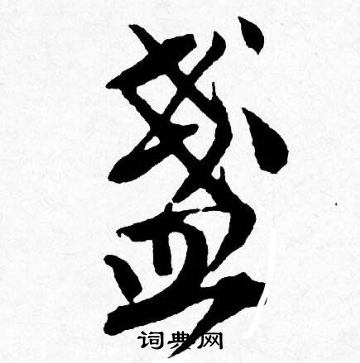 盏
词典网